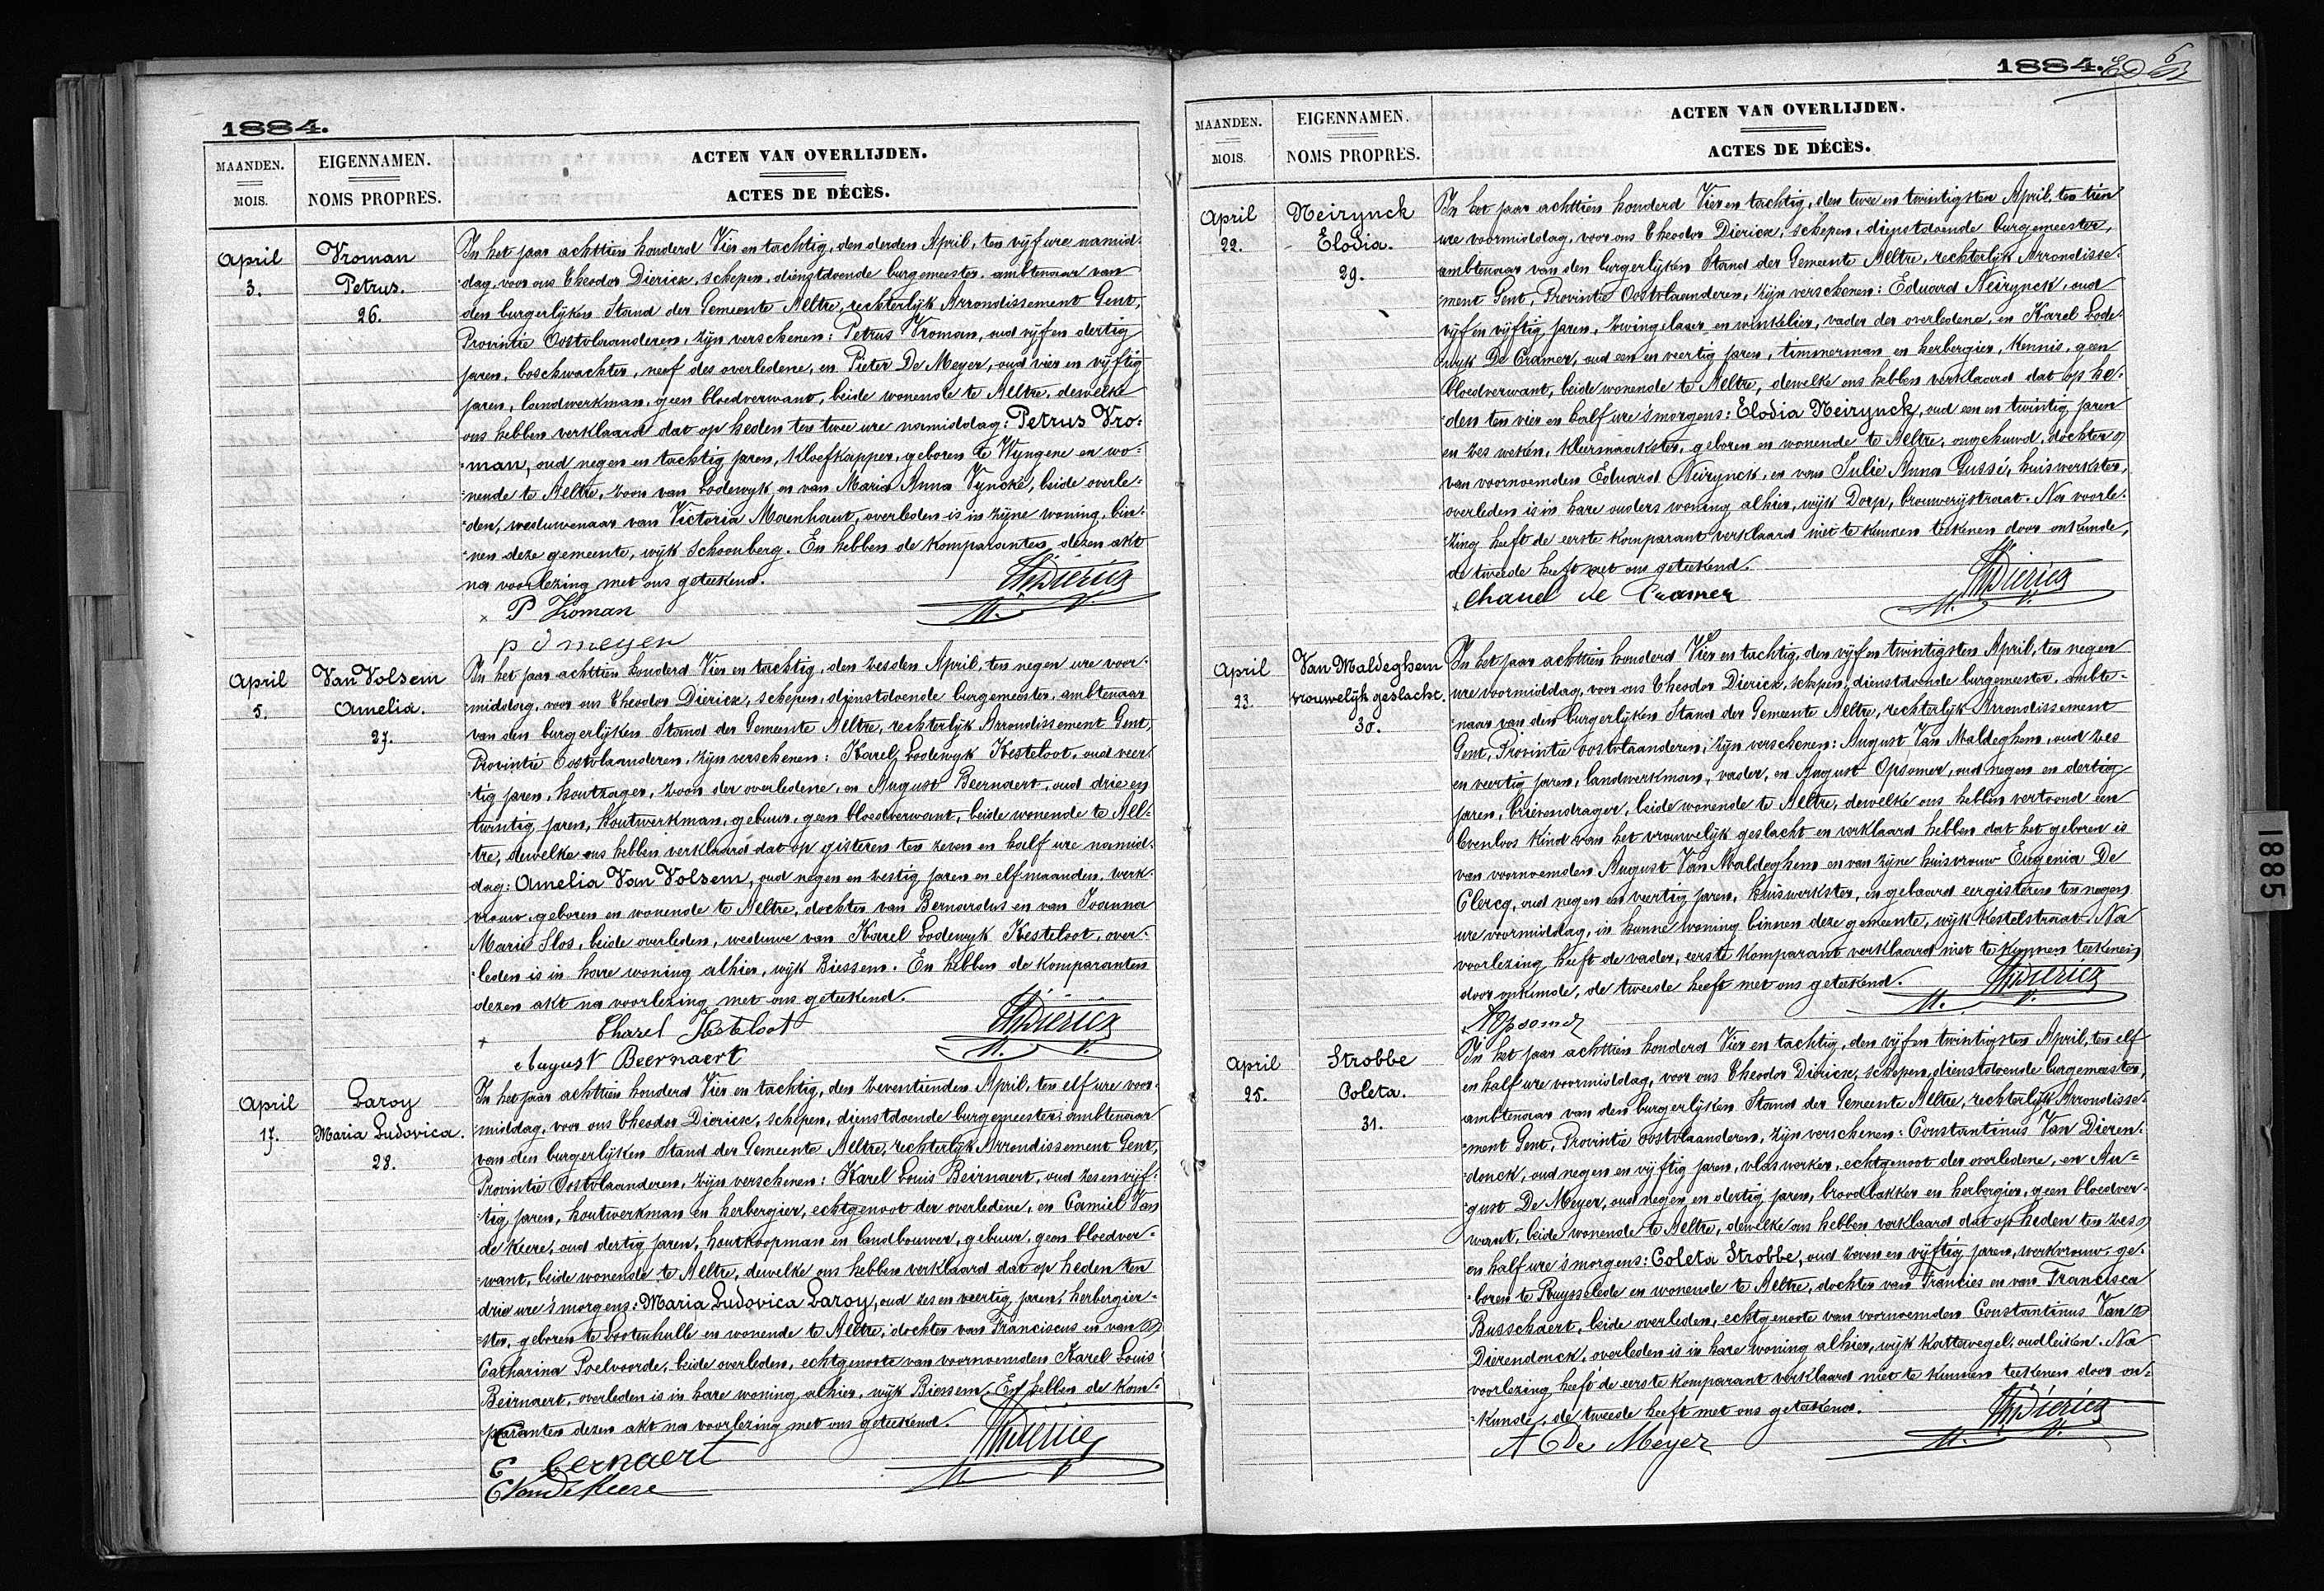 1884.
MAANDEN.
MOIS.
EIGENNAMEN.
NOMS PROPRES.
ACTEN VAN OVERLIJDEN.
ACTES DE DÉCÈS.
April
3.
Vroman
Petrus.
26.
In het jaar achttien honderd Vier en tachtig, den derden April, ten vijf ure namid-
dag, voor ons Theodor Dierick, schepen, dienstdoende burgemeester, ambtenaar van
den burgerlijken Stand der Gemeente Aeltre, rechterlijk Arrondissement Gent,
Provintie Oostvlaanderen, zijn verschenen: Petrus Vroman, oud vijf en dertig
jaren, boschwachter, neef des overledene, en Pieter De Meyer, oud vier en vijftig
jaren, landwerkman, geen bloedverwant, beide wonende te Aeltre, dewelke
ons hebben verklaard dat op heden ten twee ure namiddag: Petrus Vro=
=man, oud negen en tachtig jaren, kloefkapper, geboren te Wyngene en wo=
=nende te Aeltre, zoon van Lodewyk en van Maria Anna Vyncke, beide overle=
=den, weduwenaar van Victoria Maenhout, overleden is in zijne woning, bin=
=nen deze gemeente, wijk Schoonberg. En hebben de komparanten dezen akt
na voorlezing met ons geteekend.
ThDierick
P Vroman
p d meyer
April
5.
Van Volsem
Amelia.
27.
In het jaar achttien honderd Vier en tachtig, den zesden April, ten negen ure voor=
=middag, voor ons Theodor Dierick, schepen, dienstdoende burgemeester, ambtenaar
van den burgerlijken Stand der Gemeente Aeltre, rechterlijk Arrondissement Gent,
Provintie Oostvlaanderen, zijn verschenen: Karel Lodewyk Kesteloot, oud veer=
=tig jaren, houtzager, zoon der overledene, en August Beernaert, oud drie en
twintig jaren, houtwerkman, gebuur, geen bloedverwant, beide wonende te Ael=
=tre, dewelke ons hebben verklaard dat op gisteren ten zeven en half ure namid=
dag: Amelia Van Volsem, oud negen en zestig jaren en elf maanden, werk=
vrouw, geboren en wonende te Aeltre, dochter van Bernardus en van Joanna
Marie Slos, beide overleden, weduwe van Karel Lodewyk Kesteloot, over=
=leden is in hare woning alhier, wijk Biessem. En hebben de komparanten
dezen akt na voorlezing met ons geteekend.
ThDierick
Charel Kesteloot
August Beernaert
April
17.
Laroy
Maria Ludovica.
28.
In het jaar achttien honderd Vier en tachtig, den zeventienden April, ten elf ure voor=
middag, voor ons Theodor Dierick, schepen, dienstdoende burgemeester ambtenaar
van den burgerlijken Stand der Gemeente Aeltre, rechterlijk Arrondissement Gent,
Provintie Oostvlaanderen, zijn verschenen: Karel Louis Beirnaert, oud zes en vijf=
=tig jaren, houtwerkman en herbergier, echtgenoot der overledene, en Camiel Van
de Keere, oud dertig jaren, houtkoopman en landbouwer, gebuur, geen bloedver=
=want, beide wonende te Aeltre, dewelke ons hebben verklaard dat op heden ten
drie ure 's morgens: Maria Ludovica Laroy, oud zes en veertig jaren, herbergier=
=ster, geboren te Lootenhulle en wonende te Aeltre, dochter van Franciscus en van
Catharina Poelvoorde, beide overleden, echtgenoote van voornoemden Karel Louis
Beirnaert, overleden is in hare woning alhier, wijk Biessem. En hebben de kom=
=paranten dezen akt na voorlezing met ons geteekend.
ThDierick
C bernaert
C Van de Keere
1884.
MAANDEN.
MOIS.
EIGENNAMEN.
NOMS PROPRES.
ACTEN VAN OVERLIJDEN.
ACTES DE DÉCÈS.
April
22.
Neirynck
Elodia.
29.
In het jaar achttien honderd Vier en tachtig, den twee en twintigsten April, ten tien
ure voormiddag, voor ons Theodor Dierick, schepen, dienstdoende burgemeester,
ambtenaar van den burgerlijken Stand der Gemeente Aeltre, rechterlijk Arrondisse=
=ment Gent, Provintie Oostvlaanderen, zijn verschenen: Eduard Neirynck, oud
vijf en vijftig jaren, zwingelaar en winkelier, vader der overledene, en Karel Lode=
=wyk De Cramer, oud een en veertig jaren, timmerman en herbergier, kennis, geen
bloedverwant, beide wonende te Aeltre, dewelke ons hebben verklaard dat op he=
=den ten vier en half ure 's morgens: Elodia Neirynck, oud een en twintig jaren
en zes weken, kleermaakster, geboren en wonende te Aeltre, ongehuwd, dochter
van voornoemden Eduard Neirynck, en van Julie Anna Gussé, huiswerkster,
overleden is in hare ouders woning alhier, wijk Dorp, brouwerijstraat. Na voorle=
=zing heeft de eerste komparant verklaard niet te kunnen teekenen door onkunde,
de tweede heeft met ons geteekend.
ThDierick
Charel de Cramer
April
23.
Van Maldeghem
vrouwelijk geslacht.
30.
In het jaar achttien honderd Vier en tachtig, den vijf en twintigsten April, ten negen
ure voormiddag, voor ons Theodor Dierick, schepen, dienstdoende burgemeester, ambte=
=naar van den burgerlijken Stand der Gemeente Aeltre, rechterlijk Arrondissement
Gent, Provintie oostvlaanderen, zijn verschenen: August Van Maldeghem, oud zes
en veertig jaren, landwerkman, vader, en August Opsomer, oud negen en dertig
jaren, brievendrager, beide wonende te Aeltre, dewelke ons hebben vertoond een
levenloos kind van het vrouwelijk geslacht en verklaard hebben dat het geboren is
van voornoemden August Van Maldeghem en van zijne huisvrouw Eugenia De
Clercq, oud negen en veertig jaren, huiswerkster, en gebaard eergisteren ten negen
ure voormiddag, in hunne woning binnen deze gemeente, wijk Kestelstraat. Na
voorlezing heeft de vader, eerste komparant verklaard niet te kunnen teekenen
door onkunde, de tweede heeft met ons geteekend.
ThDierick
A Opsomer
April
25.
Strobbe
Coleta.
31.
In het jaar achttien honderd Vier en tachtig, den vijf en twintigsten April, ten elf
en half ure voormiddag, voor ons Theodor Dierick, schepen, dienstdoende burgemeester,
ambtenaar van den burgerlijken Stand der Gemeente Aeltre, rechterlijk Arrondisse=
=ment Gent, Provintie oostvlaanderen, zijn verschenen: Constantinus Van Dieren=
=donck, oud negen en vijftig jaren, vlaswerker, echtgenoot der overledene, en Au=
=gust De Meyer, oud negen en dertig jaren, broodbakker en herbergier, geen bloedver=
want, beide wonende te Aeltre, dewelke ons hebben verklaard dat op heden ten zes
en half ure 's morgens: Coleta Strobbe, oud zeven en vijftig jaren, werkvrouw, ge=
=boren te Ruysselede en wonende te Aeltre, dochter van Francies en van Francisca
Busschaert, beide overleden, echtgenoote van voornoemden Constantinus Van
Dierendonck, overleden is in hare woning alhier, wijk Kattewegel, oudleiken. Na
voorlezing heeft de eerste komparant verklaard niet te kunnen teekenen door on=
=kunde, de tweede heeft met ons geteekend.
ThDierick
A De Meyer
1885